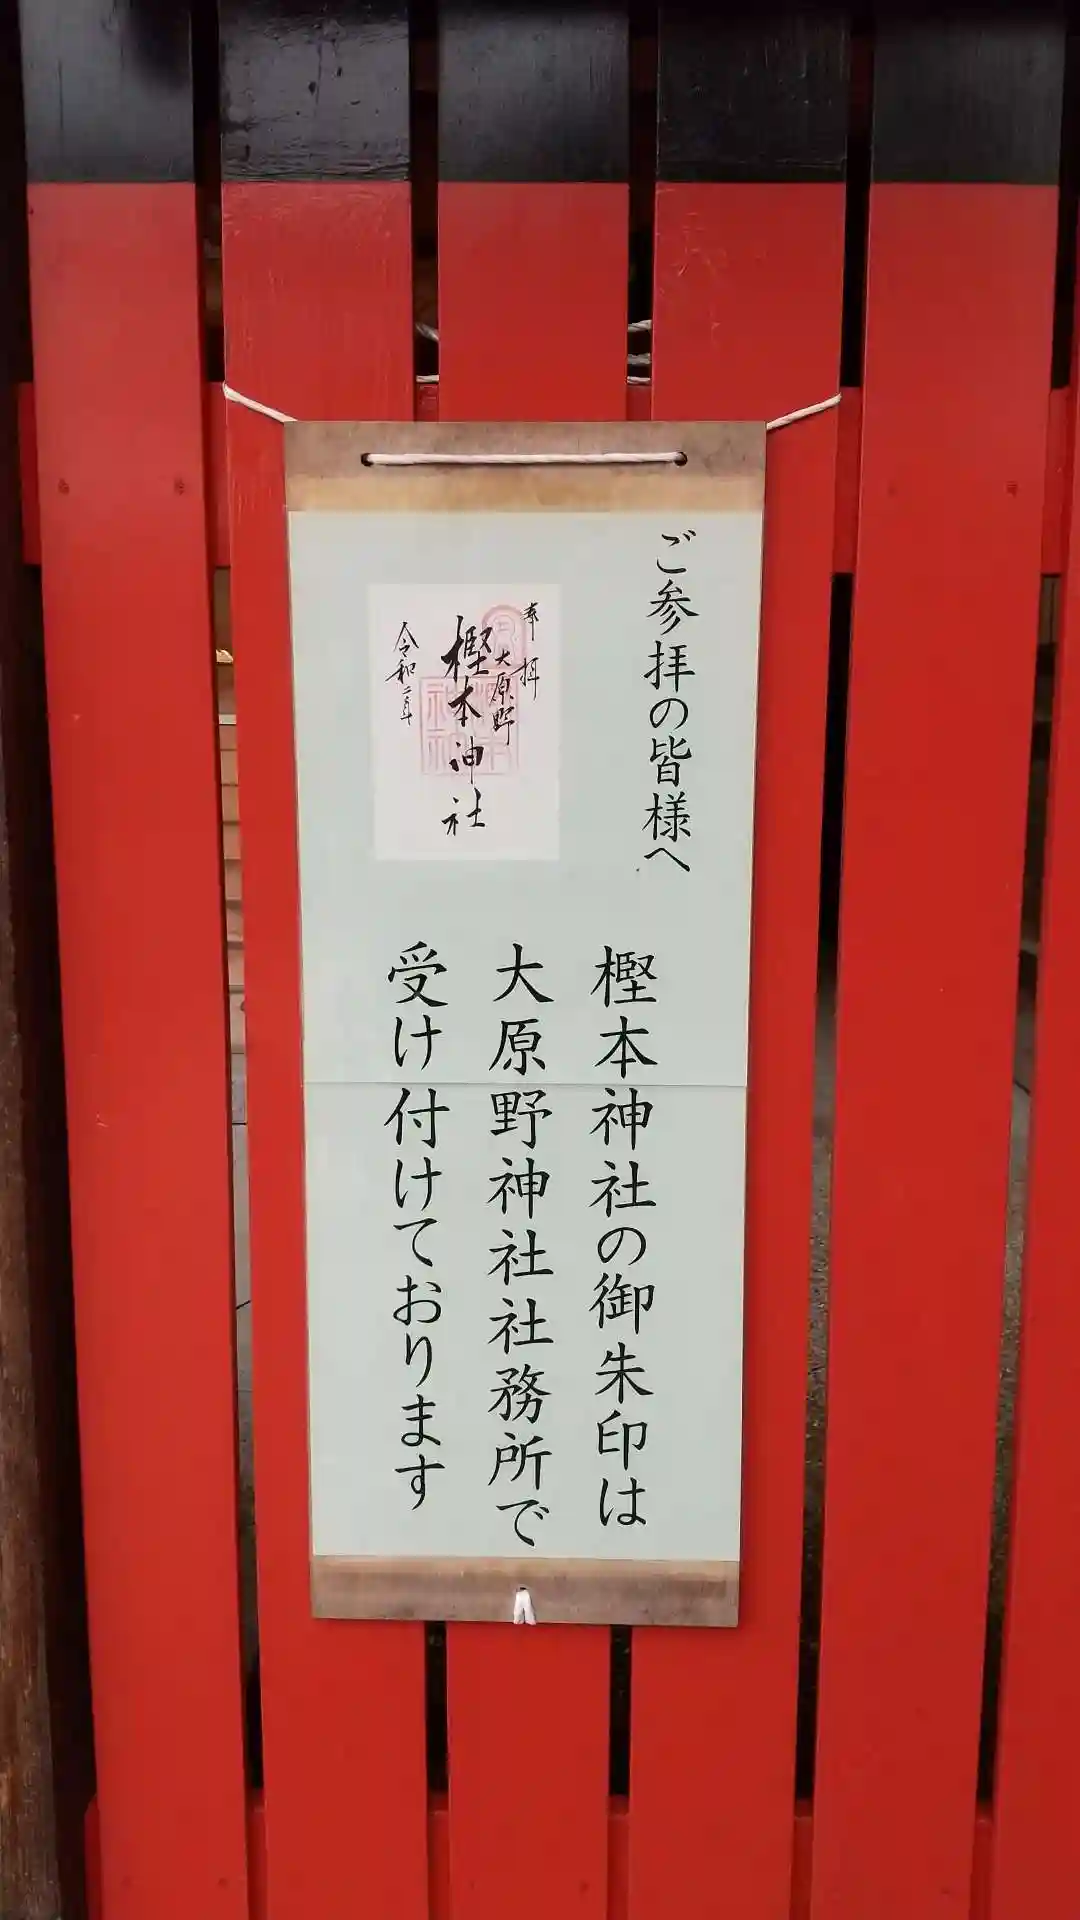 ご参拝の皆様へ
奉拝
大原野
樫本神社
令和二年
樫本神社の御朱印は
大原野神社社務所で
受け付けております